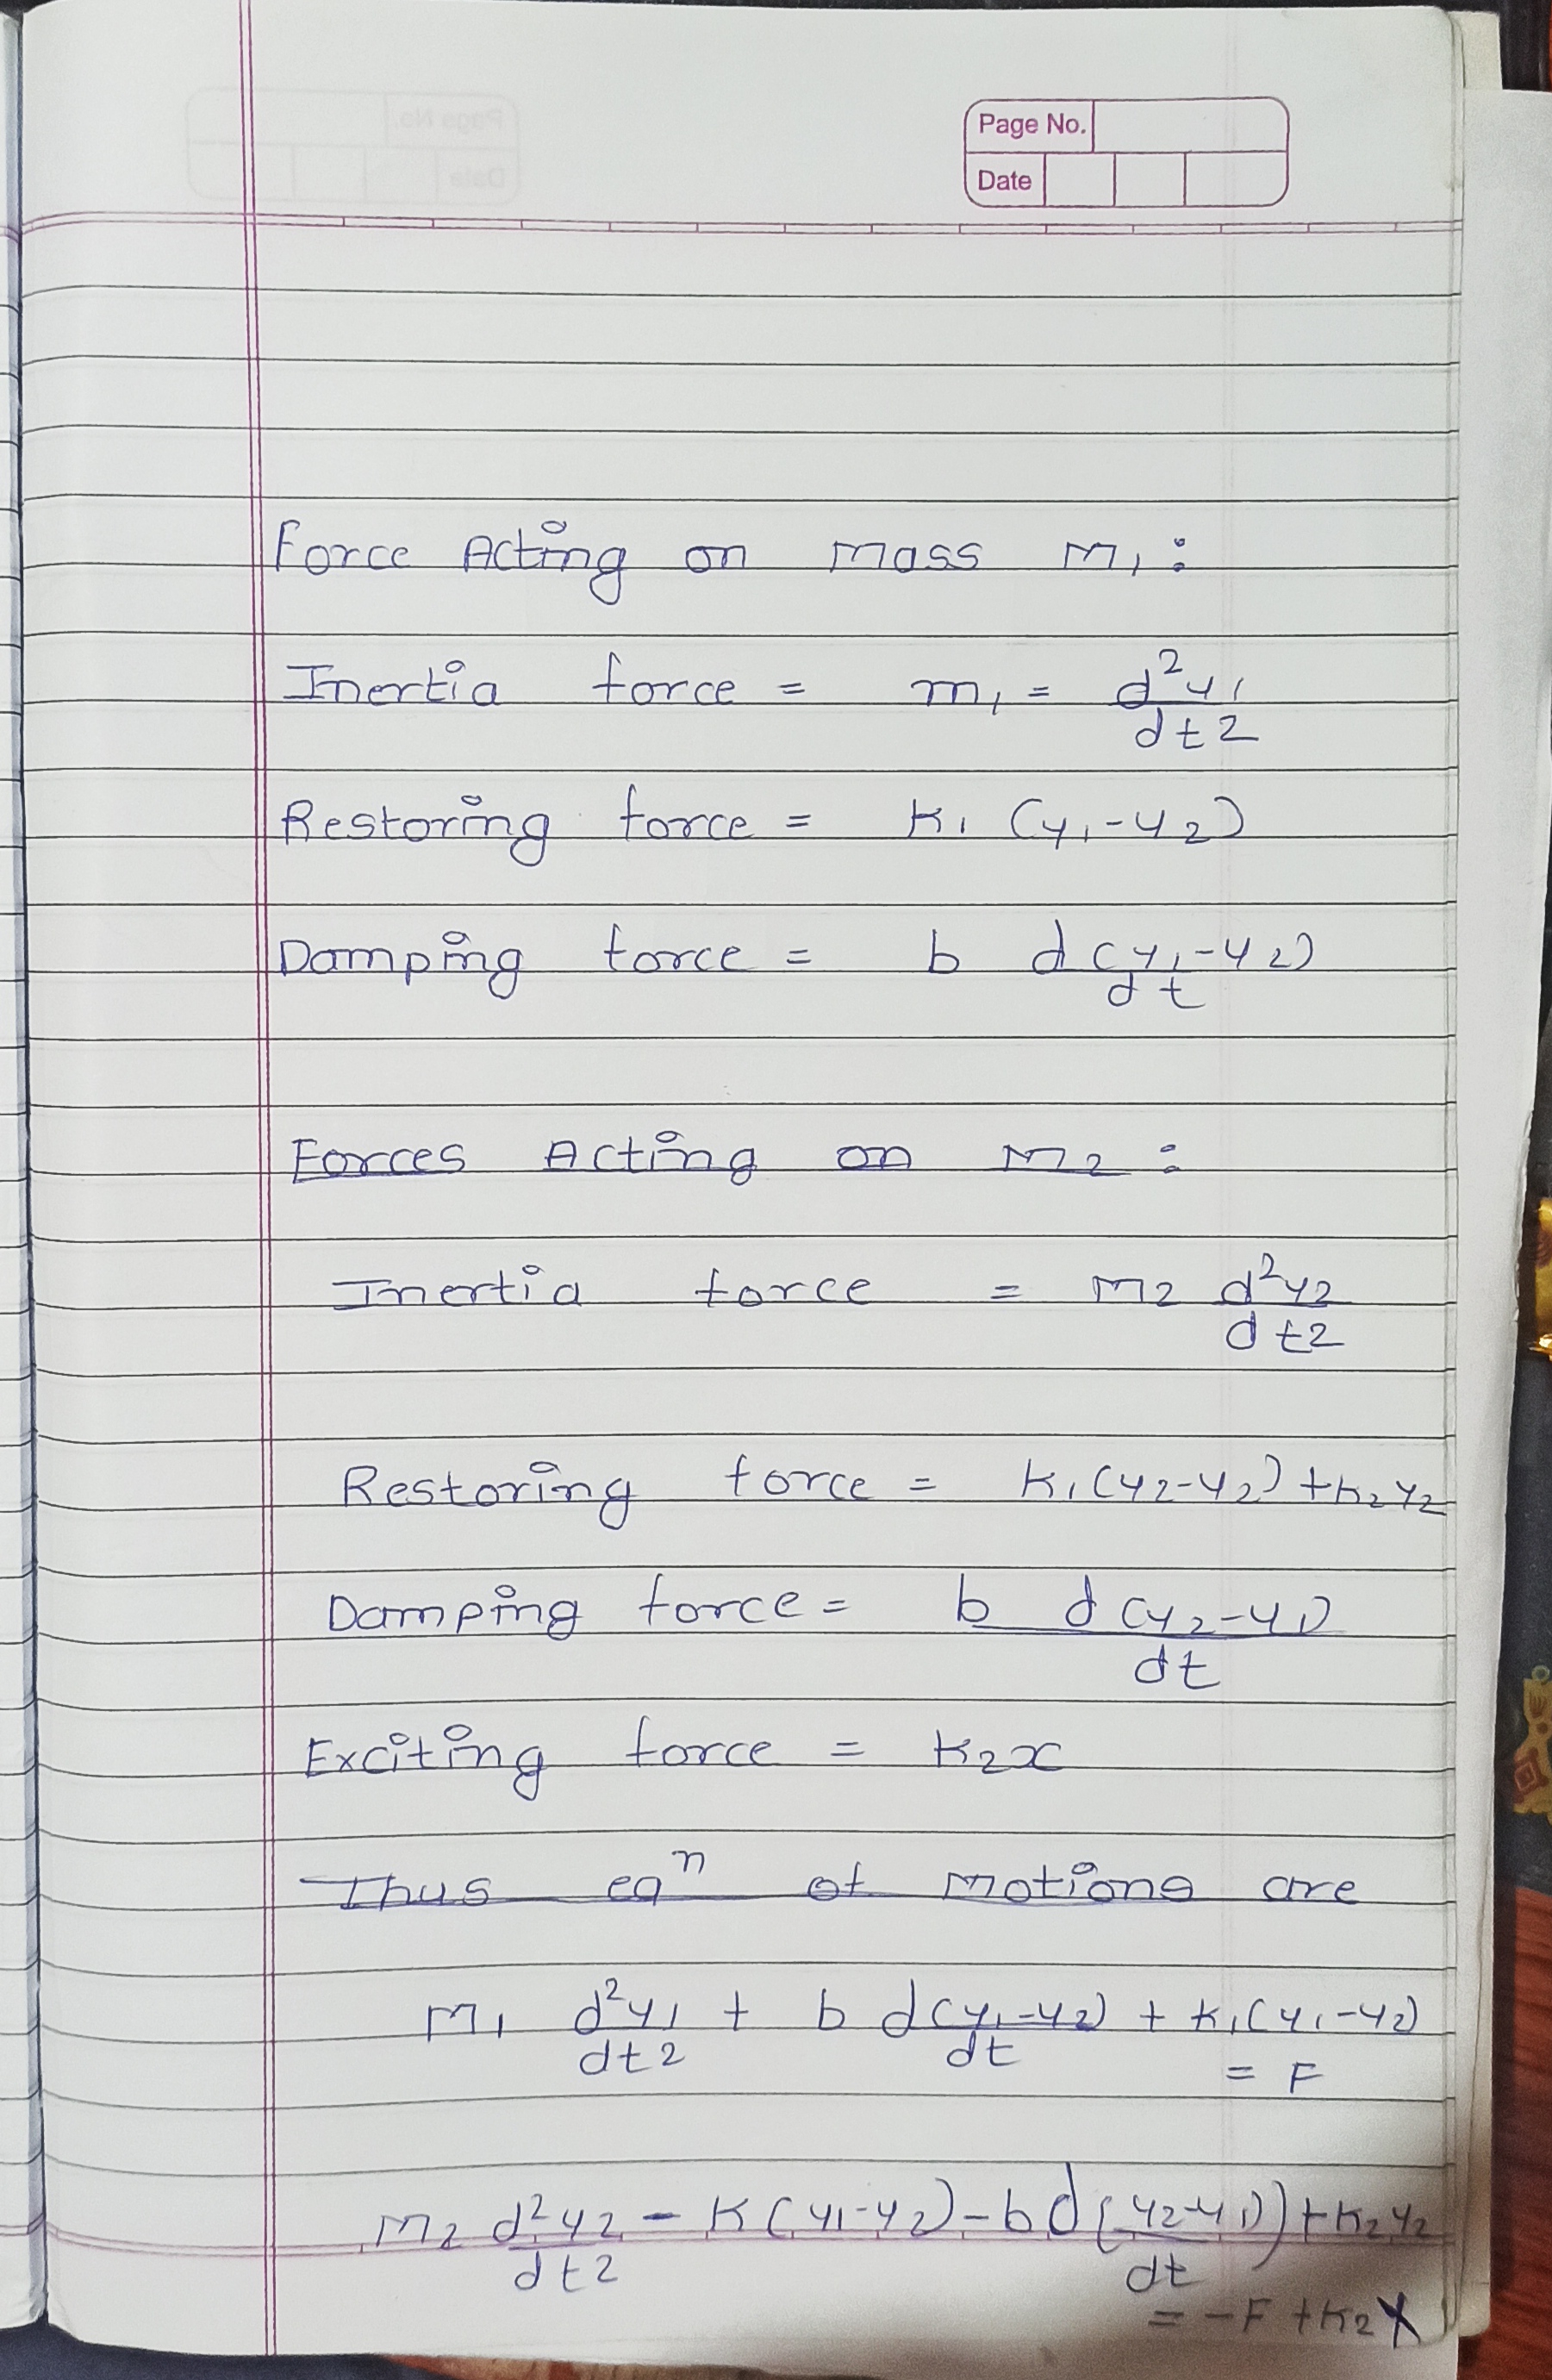 Page No.
Date
Force Acting on mass m₁ :
Inertia force = m₁ = d²y₁/dt2
Restoring force = K₁ (y₁-y₂)
Damping force = b d(y₁-y₂)/dt
Forces Acting on M₂ :
Inertia force = m₂ d²y₂/dt2
Restoring force = K₁(y₂-y₂)+K₂y₂
Damping force = b d(y₂-y₁)/dt
Exciting force = K₂x
Thus eqⁿ of motions are
M₁ d²y₁/dt2 + b d(y₁-y₂)/dt + K₁(y₁-y₂)
= F
M₂ d²y₂/dt2 - K(y₁-y₂)-b d(y₂-y₁)/dt)+K₂y₂
= -F +K₂X